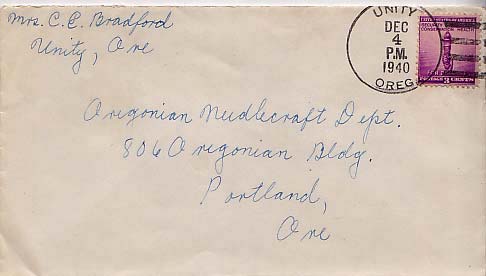 Mrs. C. E. Bradford
Unity, Ore
UNITY
DEC
4
P.M.
1940
OREG.
SECURITY
CONSERVATION HEALTH
3 CENTS
Oregonian Needlecraft Dept.
806 Oregonian Bldg.
Portland,
Ore